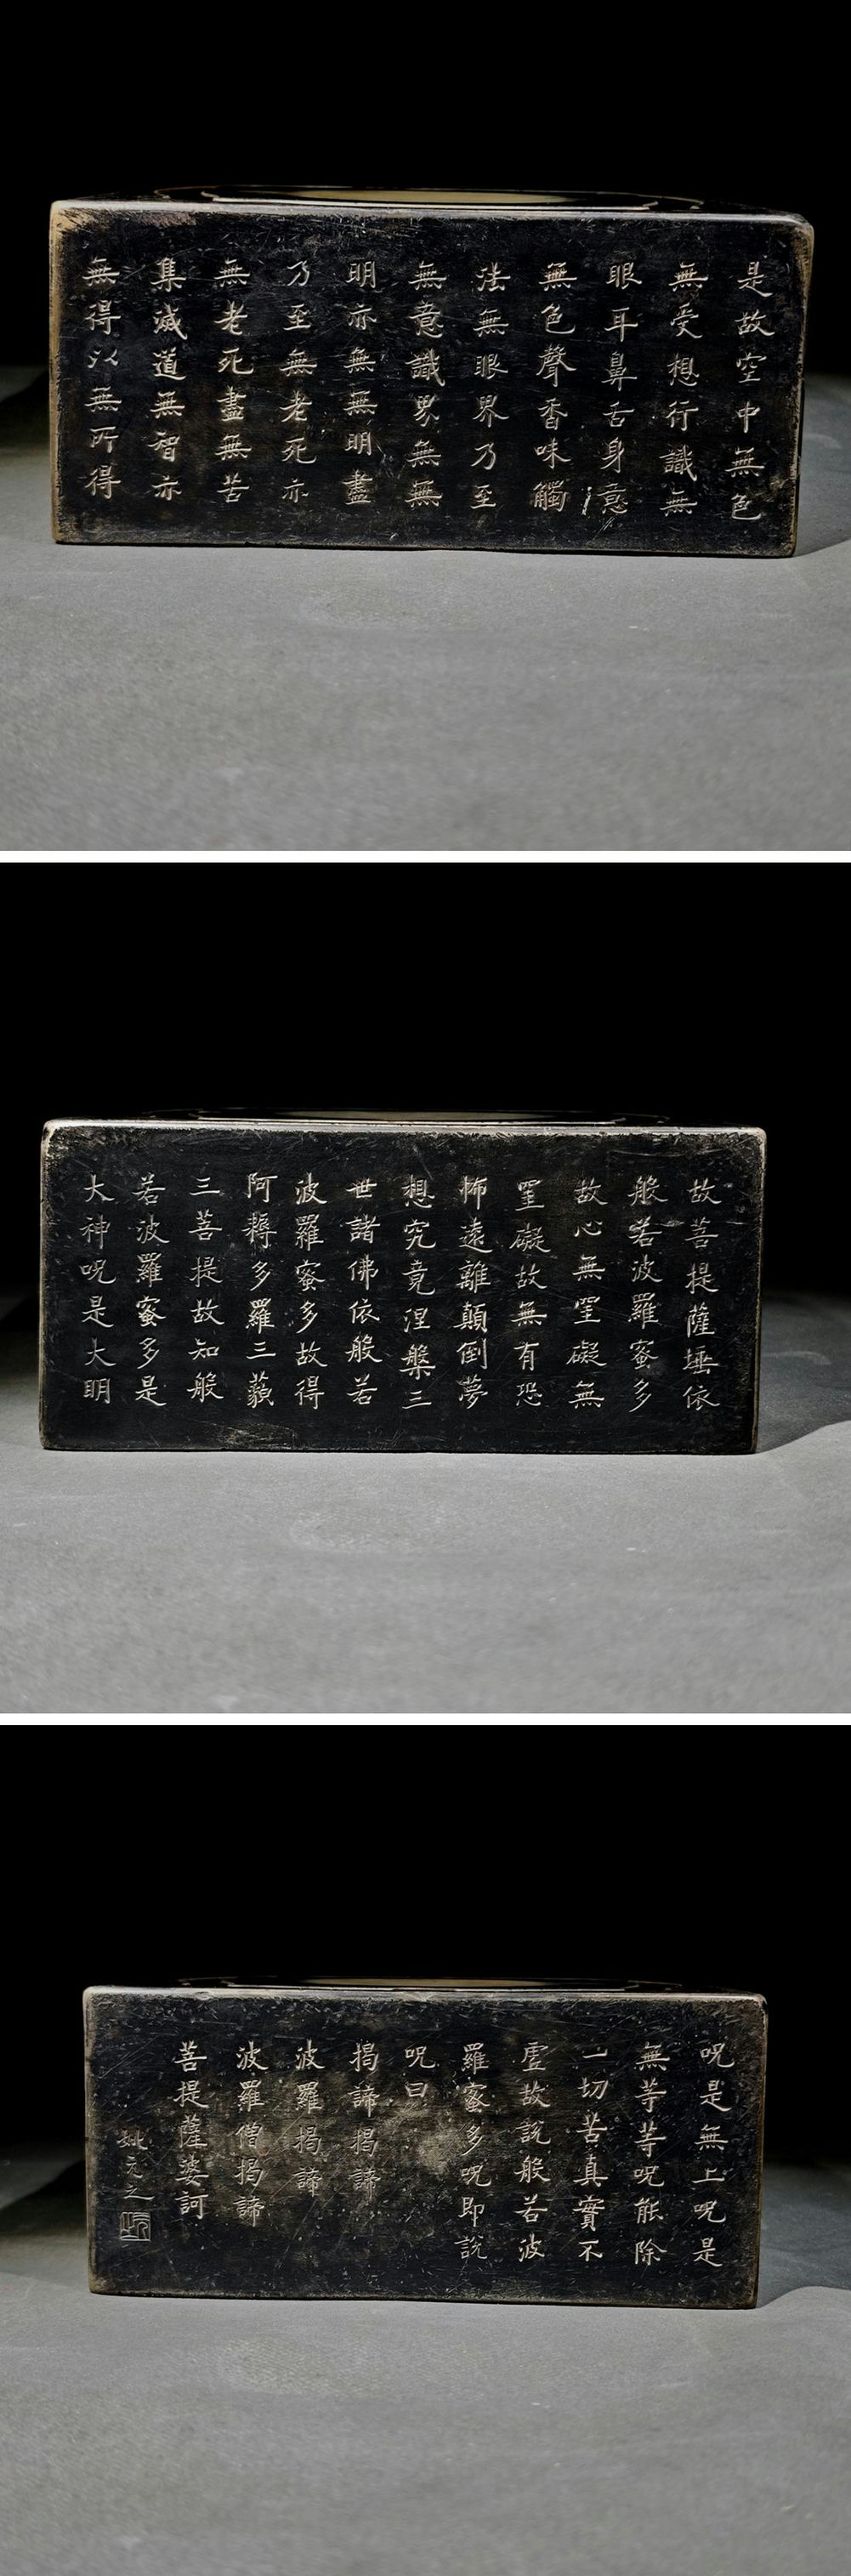 是故空中無色
無受想行識無
眼耳鼻舌身意
無色聲香味觸
法無眼界乃至
無意識界無無
明亦無無明盡
乃至無老死亦
無老死盡無苦
集滅道無智亦
無得以無所得
故菩提薩埵依
般若波羅蜜多
故心無罣礙無
罣礙故無有恐
怖遠離顛倒夢
想究竟涅槃三
世諸佛依般若
波羅蜜多故得
阿耨多羅三藐
三菩提故知般
若波羅蜜多是
大神呪是大明
呪是無上呪是
無等等呪能除
一切苦真實不
虛故說般若波
羅蜜多呪即說
呪曰
揭諦揭諦
波羅揭諦
波羅僧揭諦
菩提薩婆訶
姚元之